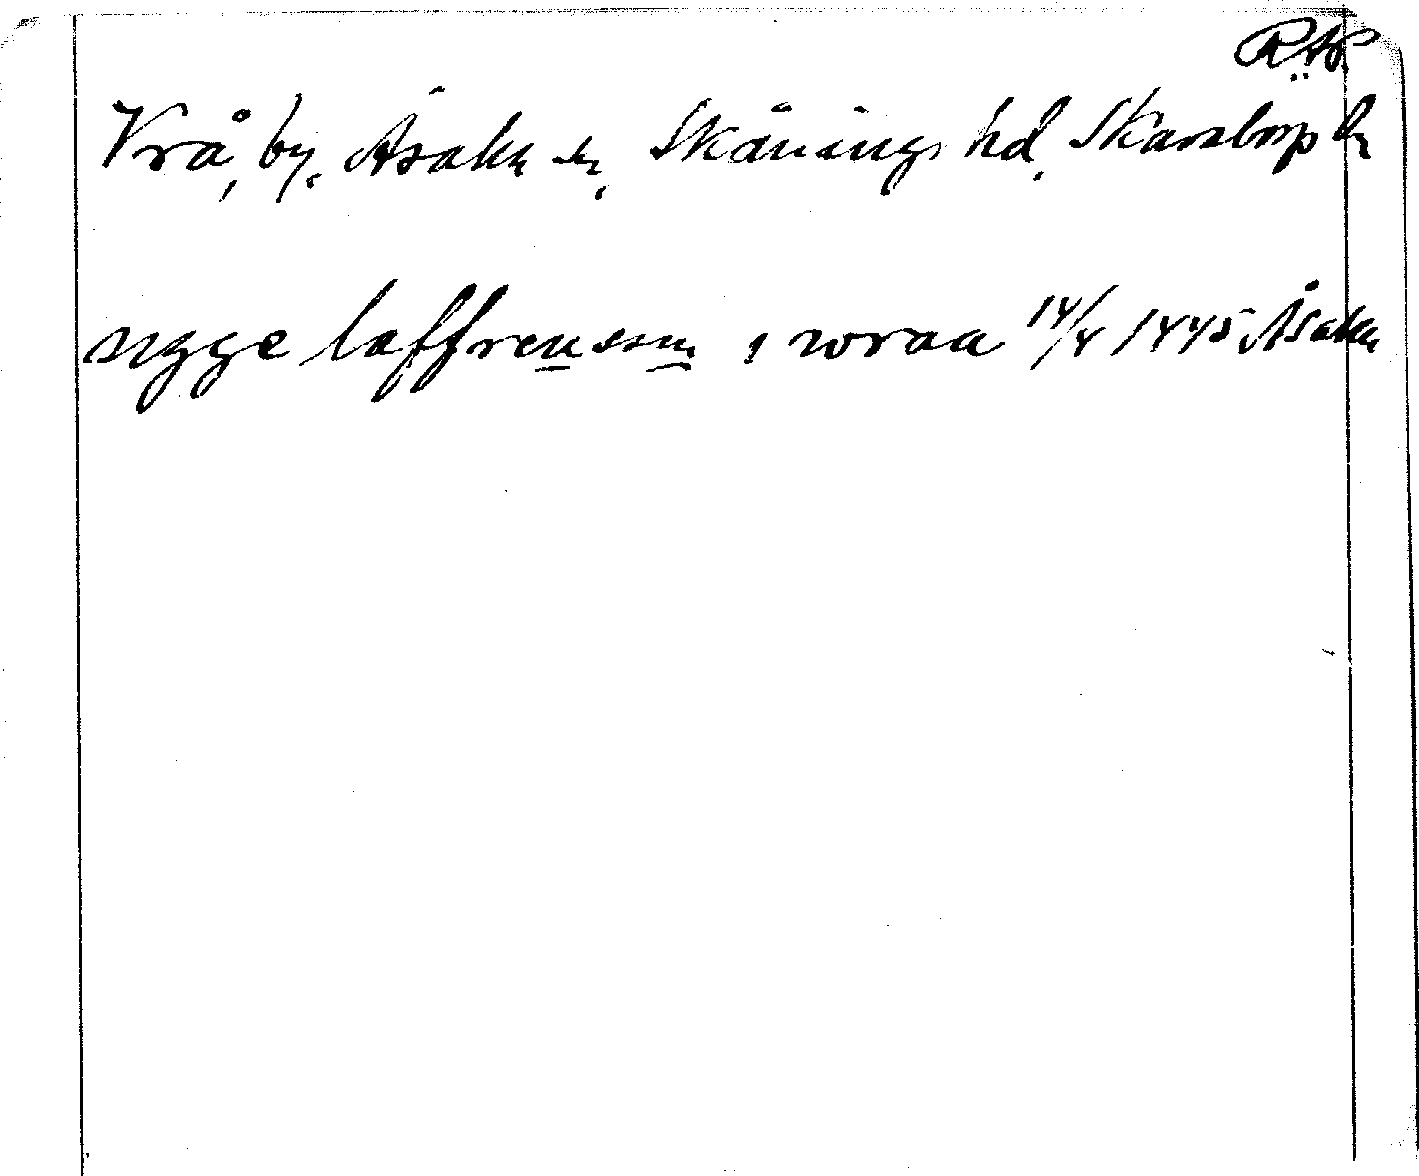 RÄP
Vrå, by. Åsaka sn, Skånings hd. Skaraborgs ln
nygge laffrensson i wraa 14/4 1445 Åsaka